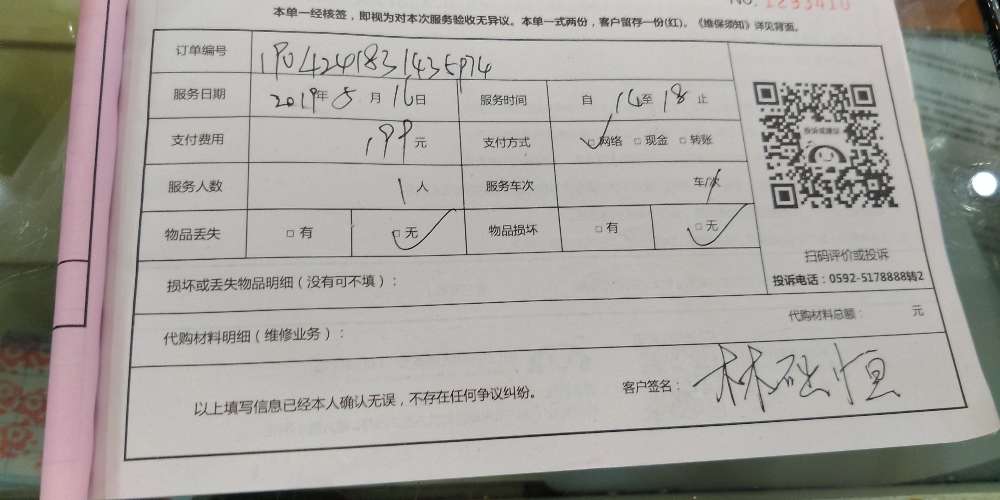 NO. 1233410
本单一经核签，即视为对本次服务验收无异议。本单一式两份，客户留存一份(红)。《维保须知》详见背面。
订单编号
服务日期 2019年 8 月 16日 服务时间 自 14至 18 止
支付费用 199 元 支付方式 □网络 □现金 □转账
服务人数 1 人 服务车次 车/次
物品丢失 □有 □无 物品损坏 □有 □无
投诉或建议
扫码评价或投诉
投诉电话：0592-5178888转2
损坏或丢失物品明细（没有可不填）：
代购材料明细（维修业务）： 代购材料总额： 元
以上填写信息已经本人确认无误，不存在任何争议纠纷。 客户签名：林